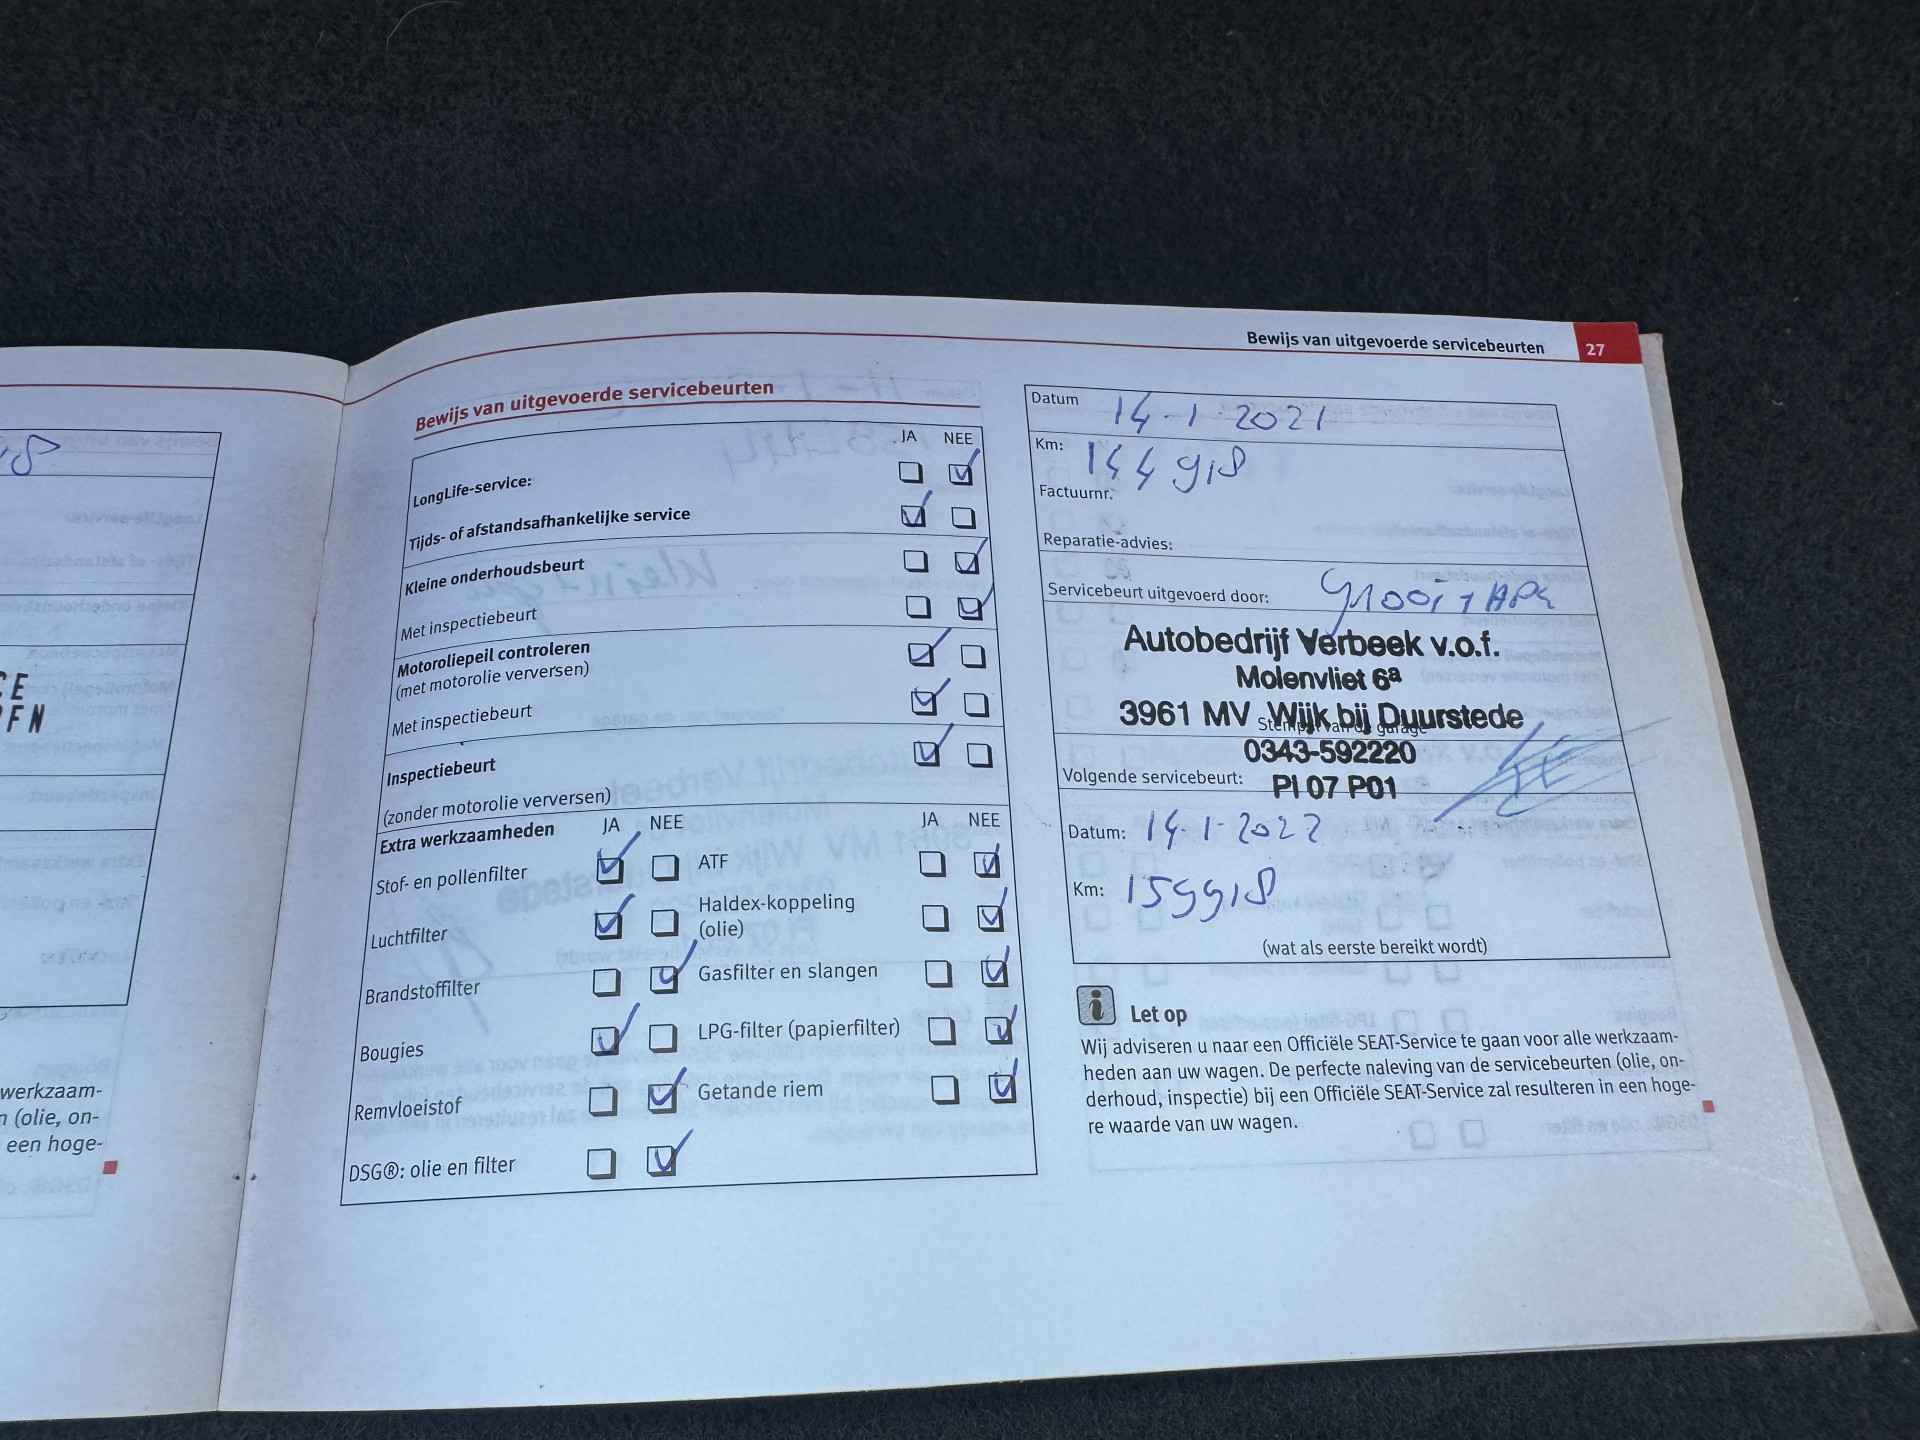 CE
werkzaam-
n (olie, on-
een hoge-
Bewijs van uitgevoerde servicebeurten 27
Bewijs van uitgevoerde servicebeurten
JA NEE
LongLife-service:
Tijds- of afstandsafhankelijke service
Kleine onderhoudsbeurt
Met inspectiebeurt
Motoroliepeil controleren
(met motorolie verversen)
Met inspectiebeurt
Inspectiebeurt
(zonder motorolie verversen)
Extra werkzaamheden JA NEE JA NEE
Stof- en pollenfilter ATF
Luchtfilter Haldex-koppeling
(olie)
Brandstoffilter Gasfilter en slangen
Bougies LPG-filter (papierfilter)
Remvloeistof Getande riem
DSG®: olie en filter
Datum 14-1-2021
Km: 144918
Factuurnr.
Reparatie-advies:
Servicebeurt uitgevoerd door: groot + APK
Autobedrijf Verbeek v.o.f.
Molenvliet 6a
3961 MV Wijk bij Duurstede
Stempel van de garage
0343-592220
Volgende servicebeurt: PI 07 P01
Datum: 14-1-2022
Km: 159918
(wat als eerste bereikt wordt)
Let op
Wij adviseren u naar een Officiële SEAT-Service te gaan voor alle werkzaam-
heden aan uw wagen. De perfecte naleving van de servicebeurten (olie, on-
derhoud, inspectie) bij een Officiële SEAT-Service zal resulteren in een hoge-
re waarde van uw wagen.